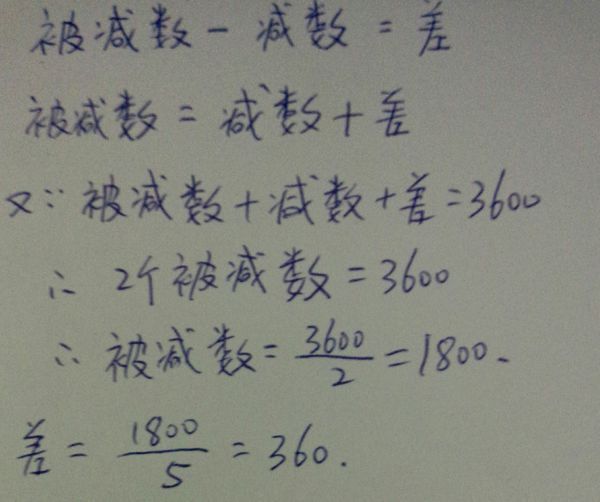 被减数 - 减数 = 差
被减数 = 减数 + 差
又∵ 被减数 + 减数 + 差 = 3600
∴ 2个被减数 = 3600
∴ 被减数 = 3600/2 = 1800.
差 = 1800/5 = 360.